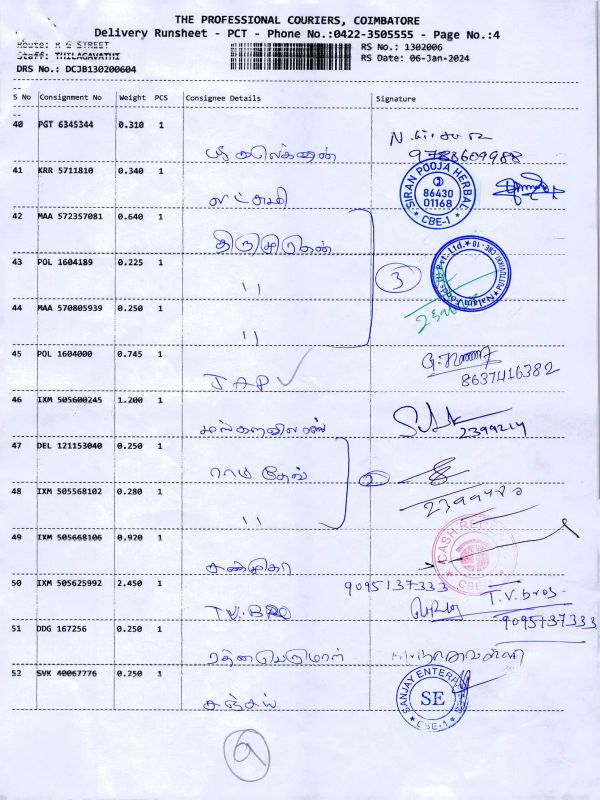 THE PROFESSIONAL COURIERS, COIMBATORE
Delivery Runsheet - PCT - Phone No.:0422-3505555 - Page No.:4
Route: M G STREET
RS No.: 1302006
Staff: THILAGAVATHI
RS Date: 06-Jan-2024
DRS No.: DCJB130200604
S No Consignment No Weight PCS Consignee Details Signature
40 PGT 6345344 0.310 1
9788609988
41 KRR 5711810 0.340 1
லட்சுமி
SIRAN POOJA HERBAL
86430
01168
CBE-1
42 MAA 572357081 0.640 1
திருமுருகன்
43 POL 1604189 0.225 1
"
3
44 MAA 570805939 0.250 1
"
45 POL 1604000 0.745 1
JAP ✓
8637416382
46 IXM 505600245 1.200 1
2399214
47 DEL 121153040 0.250 1
ராமதேவ்
2
48 IXM 505568102 0.280 1
"
49 IXM 505668106 0.920 1
சண்முகா
CASH
CBE
50 IXM 505625992 2.450 1
9095137333
T.V.BRO
T.V.bros.
9095137333
51 DDG 167256 0.250 1
52 SVK 40067776 0.250 1
சஞ்சய்
SANJAY ENTERPRISES
SE
CBE-1
9